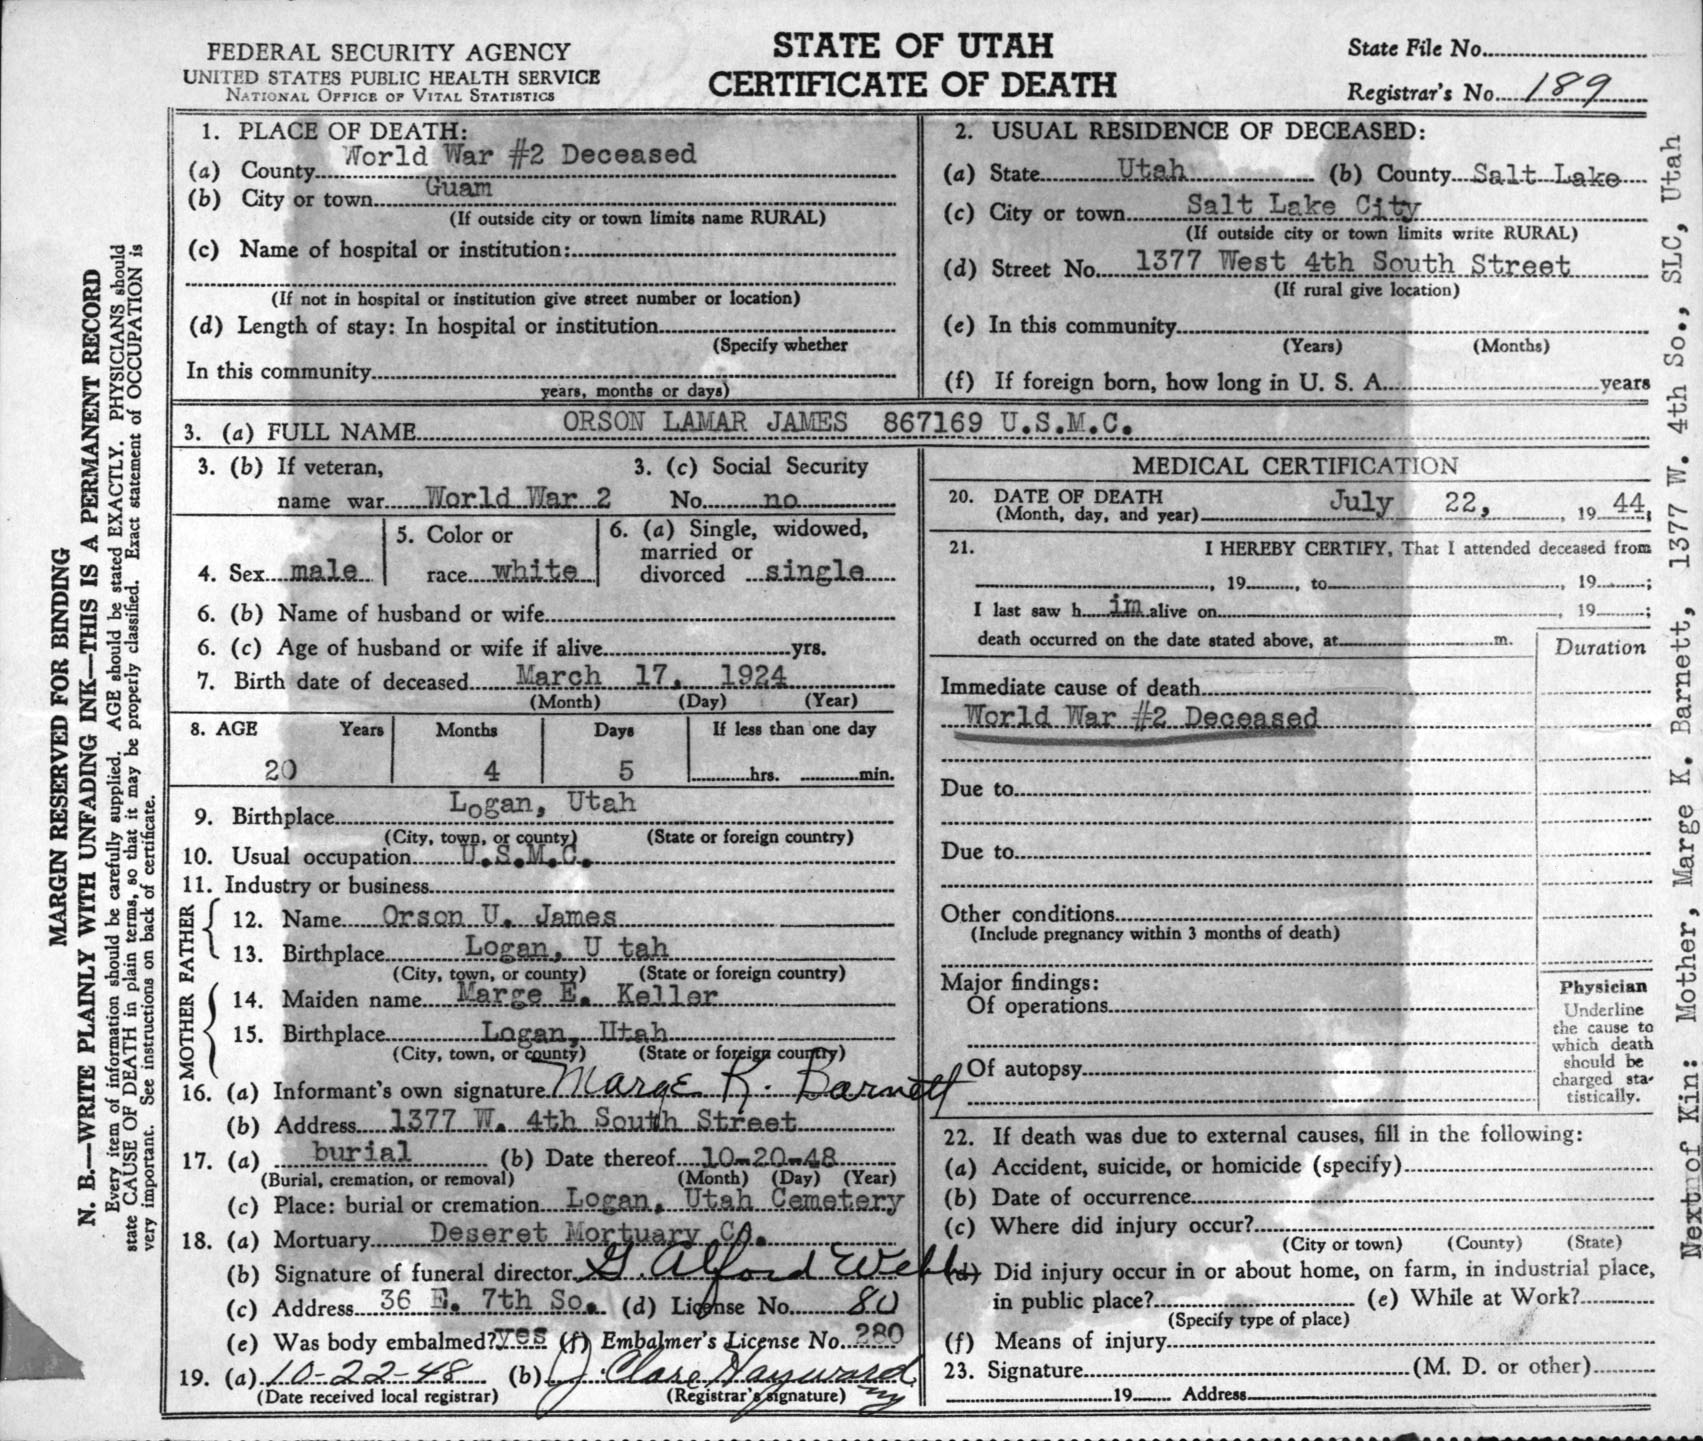 FEDERAL SECURITY AGENCY
UNITED STATES PUBLIC HEALTH SERVICE
NATIONAL OFFICE OF VITAL STATISTICS
STATE OF UTAH
CERTIFICATE OF DEATH
State File No.
Registrar's No. 189
1. PLACE OF DEATH:
World War #2 Deceased
(a) County
(b) City or town Guam
(If outside city or town limits name RURAL)
(c) Name of hospital or institution:
(If not in hospital or institution give street number or location)
(d) Length of stay: In hospital or institution
(Specify whether
In this community
years, months or days)
2. USUAL RESIDENCE OF DECEASED:
(a) State Utah (b) County Salt Lake
(c) City or town Salt Lake City
(If outside city or town limits write RURAL)
(d) Street No. 1377 West 4th South Street
(If rural give location)
(e) In this community
(Years) (Months)
(f) If foreign born, how long in U. S. A. years
3. (a) FULL NAME ORSON LAMAR JAMES 867169 U.S.M.C.
3. (b) If veteran,
name war World War 2
3. (c) Social Security
No. no
4. Sex male
5. Color or
race white
6. (a) Single, widowed,
married or
divorced single
6. (b) Name of husband or wife
6. (c) Age of husband or wife if alive yrs.
7. Birth date of deceased March 17, 1924
(Month) (Day) (Year)
8. AGE Years Months Days If less than one day
20 4 5 hrs. min.
9. Birthplace Logan, Utah
(City, town, or county) (State or foreign country)
10. Usual occupation U.S.M.C.
11. Industry or business
FATHER
12. Name Orson U. James
13. Birthplace Logan, U tah
(City, town, or county) (State or foreign country)
MOTHER
14. Maiden name Marge E. Keller
15. Birthplace Logan, Utah
(City, town, or county) (State or foreign country)
16. (a) Informant's own signature Marge K. Barnett
(b) Address 1377 W. 4th South Street
17. (a) burial (b) Date thereof 10-20-48
(Burial, cremation, or removal) (Month) (Day) (Year)
(c) Place: burial or cremation Logan, Utah Cemetery
18. (a) Mortuary Deseret Mortuary Co.
(b) Signature of funeral director G. Alford Webb
(c) Address 36 E. 7th So. (d) License No. 80
(e) Was body embalmed? yes (f) Embalmer's License No. 280
19. (a) 10-22-48 (b) J. Clare Hayward
(Date received local registrar) (Registrar's signature)
MEDICAL CERTIFICATION
20. DATE OF DEATH
(Month, day, and year) July 22, , 19 44,
21. I HEREBY CERTIFY, That I attended deceased from
, 19 , to , 19 ;
I last saw h im alive on , 19 ;
death occurred on the date stated above, at m.
Duration
Immediate cause of death
World War #2 Deceased
Due to
Due to
Other conditions
(Include pregnancy within 3 months of death)
Major findings:
Of operations
Of autopsy
Physician
Underline
the cause to
which death
should be
charged sta-
tistically.
22. If death was due to external causes, fill in the following:
(a) Accident, suicide, or homicide (specify)
(b) Date of occurrence
(c) Where did injury occur?
(City or town) (County) (State)
(d) Did injury occur in or about home, on farm, in industrial place,
in public place? (e) While at Work?
(Specify type of place)
(f) Means of injury
23. Signature (M. D. or other)
19 Address
MARGIN RESERVED FOR BINDING
N. B.—WRITE PLAINLY WITH UNFADING INK—THIS IS A PERMANENT RECORD
Every item of information should be carefully supplied. AGE should be stated EXACTLY. PHYSICIANS should
state CAUSE OF DEATH in plain terms, so that it may be properly classified. Exact statement of OCCUPATION is
very important. See instructions on back of certificate.
Next of Kin: Mother, Marge K. Barnett, 1377 W. 4th So., SLC, Utah